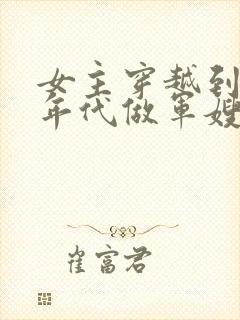 女主穿越到
年代做军嫂
崔富君